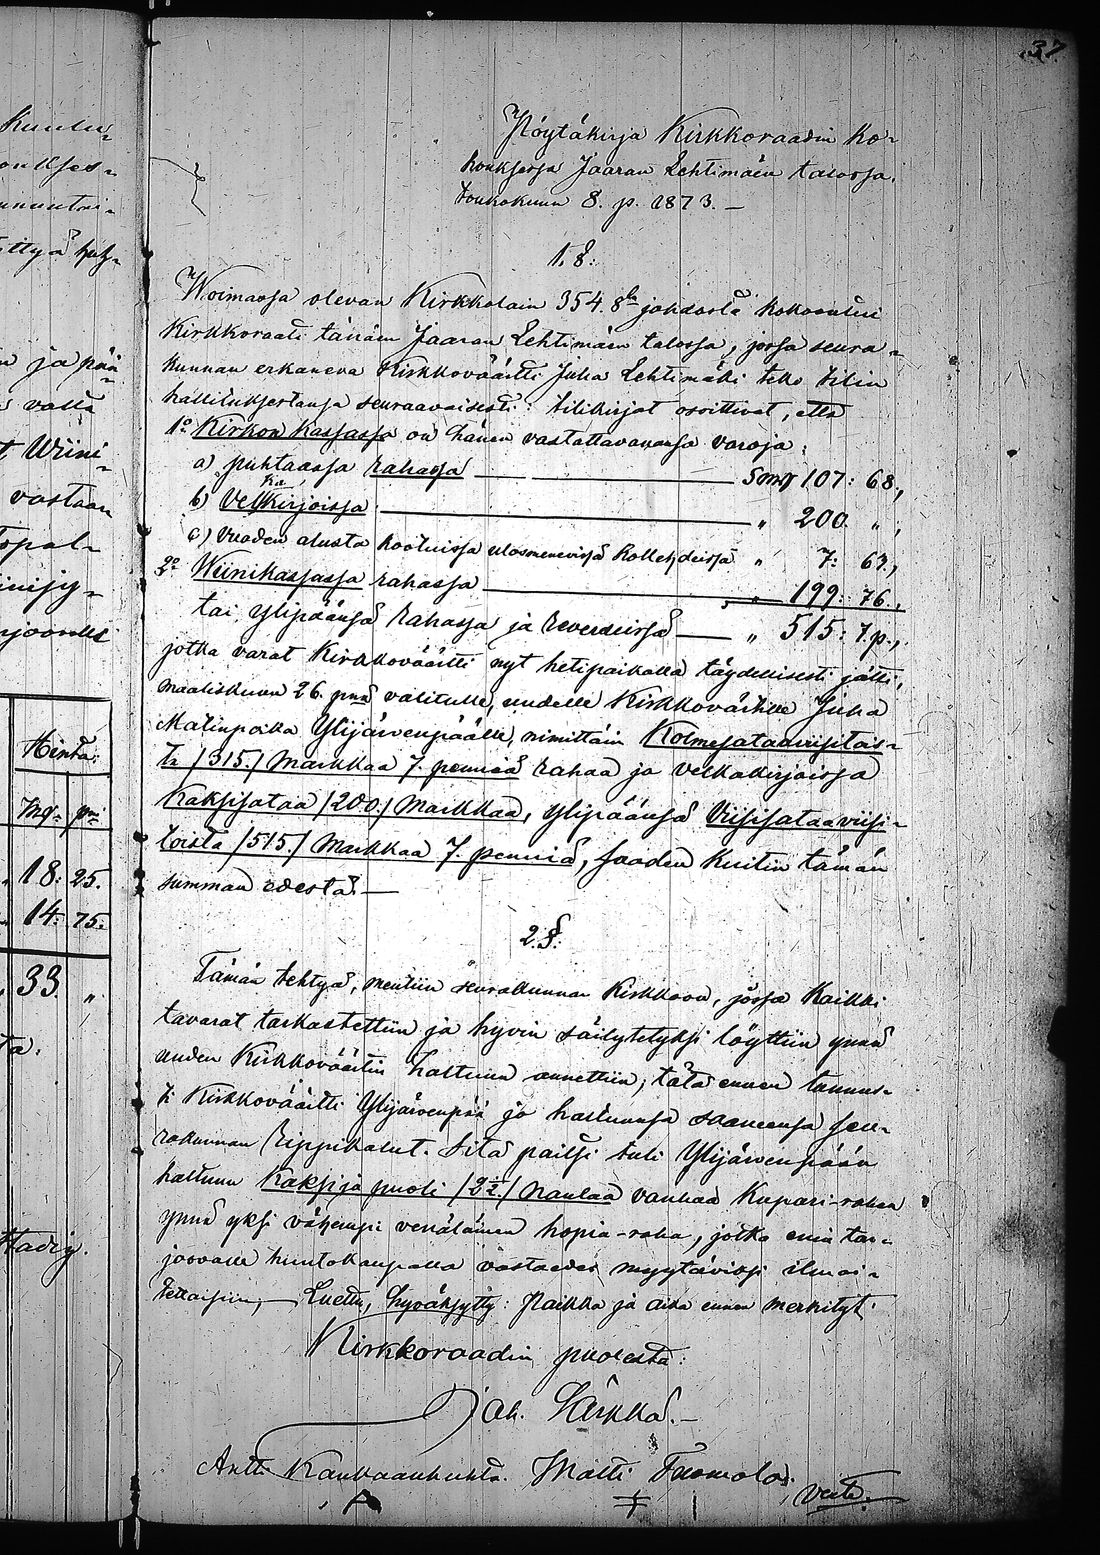 37
Pöytäkirja Kirkkoraadin ko-
kouksessa Jaaran Lehtimäen talossa,
toukokuun 8. p. 1873. —
1. §:
Woimassa olevan Kirkkolain 354. §:n johdosta kokoontui
Kirkkoraati tänään Jaaran Lehtimäen talossa, jossa seura-
kunnan erkaneva Kirkkoväärtti Juha Lehtimäki teko tilin
hallituksestansa seuraavaisesti: tilikirjat osoittivat, että
1:o Kirkon kassassa on hänen vastattavanansa varoja:
a) puhtaassa rahassa — Smg 107: 68.,
b) Velkakirjoissa — " 200. " ,
c) Vuoden alusta kootuissa ulosmenevissä Kollehdeissa " 7: 63.,
2:o Wiinikassassa rahassa — " 199: 76.,
tai ylipäänsä rahassa ja reverseissä — " 515: 7. p.,
jotka varat Kirkkoväärtti nyt hetipaikalla täydellisesti jätti,
maaliskuun 26. pnä valitulle, uudelle Kirkkovärtille Juha
Matinpoika Ylijärvenpäälle, nimittäin Kolmesataaviisitois-
ta /315./ Markkaa 7. penniä rahaa ja velkakirjoissa
Kaksisataa /200./ Markkaa, ylipäänsä Viisisataaviisi-
toista /515./ Markkaa 7. penniä, saaden Kuitin tämän
summan edestä. —
2. §:
Tämän tehtyä, mentiin seurakunnan Kirkkoon, jossa Kaikki
tavarat tarkastettiin ja hyvin säilytetyksi löyttiin ynnä
uuden Kirkkoväärtin haltuun annettiin; tätä ennen tunnus-
ti Kirkkoväärtti Ylijärvenpää jo haltuunsa saaneensa seu-
rakunnan Rippikalut. Sitä paitsi tuli Ylijärvenpään
haltuun Kaksi ja puoli /2½./ naulaa vanhaa Kupari-rahaa
ynnä yksi vähempi venäläinen hopia-raha, jotka enin tar-
joovalle huutokaupalla vastaedes myytäviksi ilmoi-
tettaisiin, — Luettu, hyväksytty: Paikka ja aika ennen merkityt.
Kirkkoraadin puolesta:
Joh. Särkkä. —
Antti Kankaanhuhta. Matti Tuomola.
Kuulu-
vastaan
ja pää-
Wiini-
Hinta:
Mg. pni
18: 25.
14: 75.
33. "